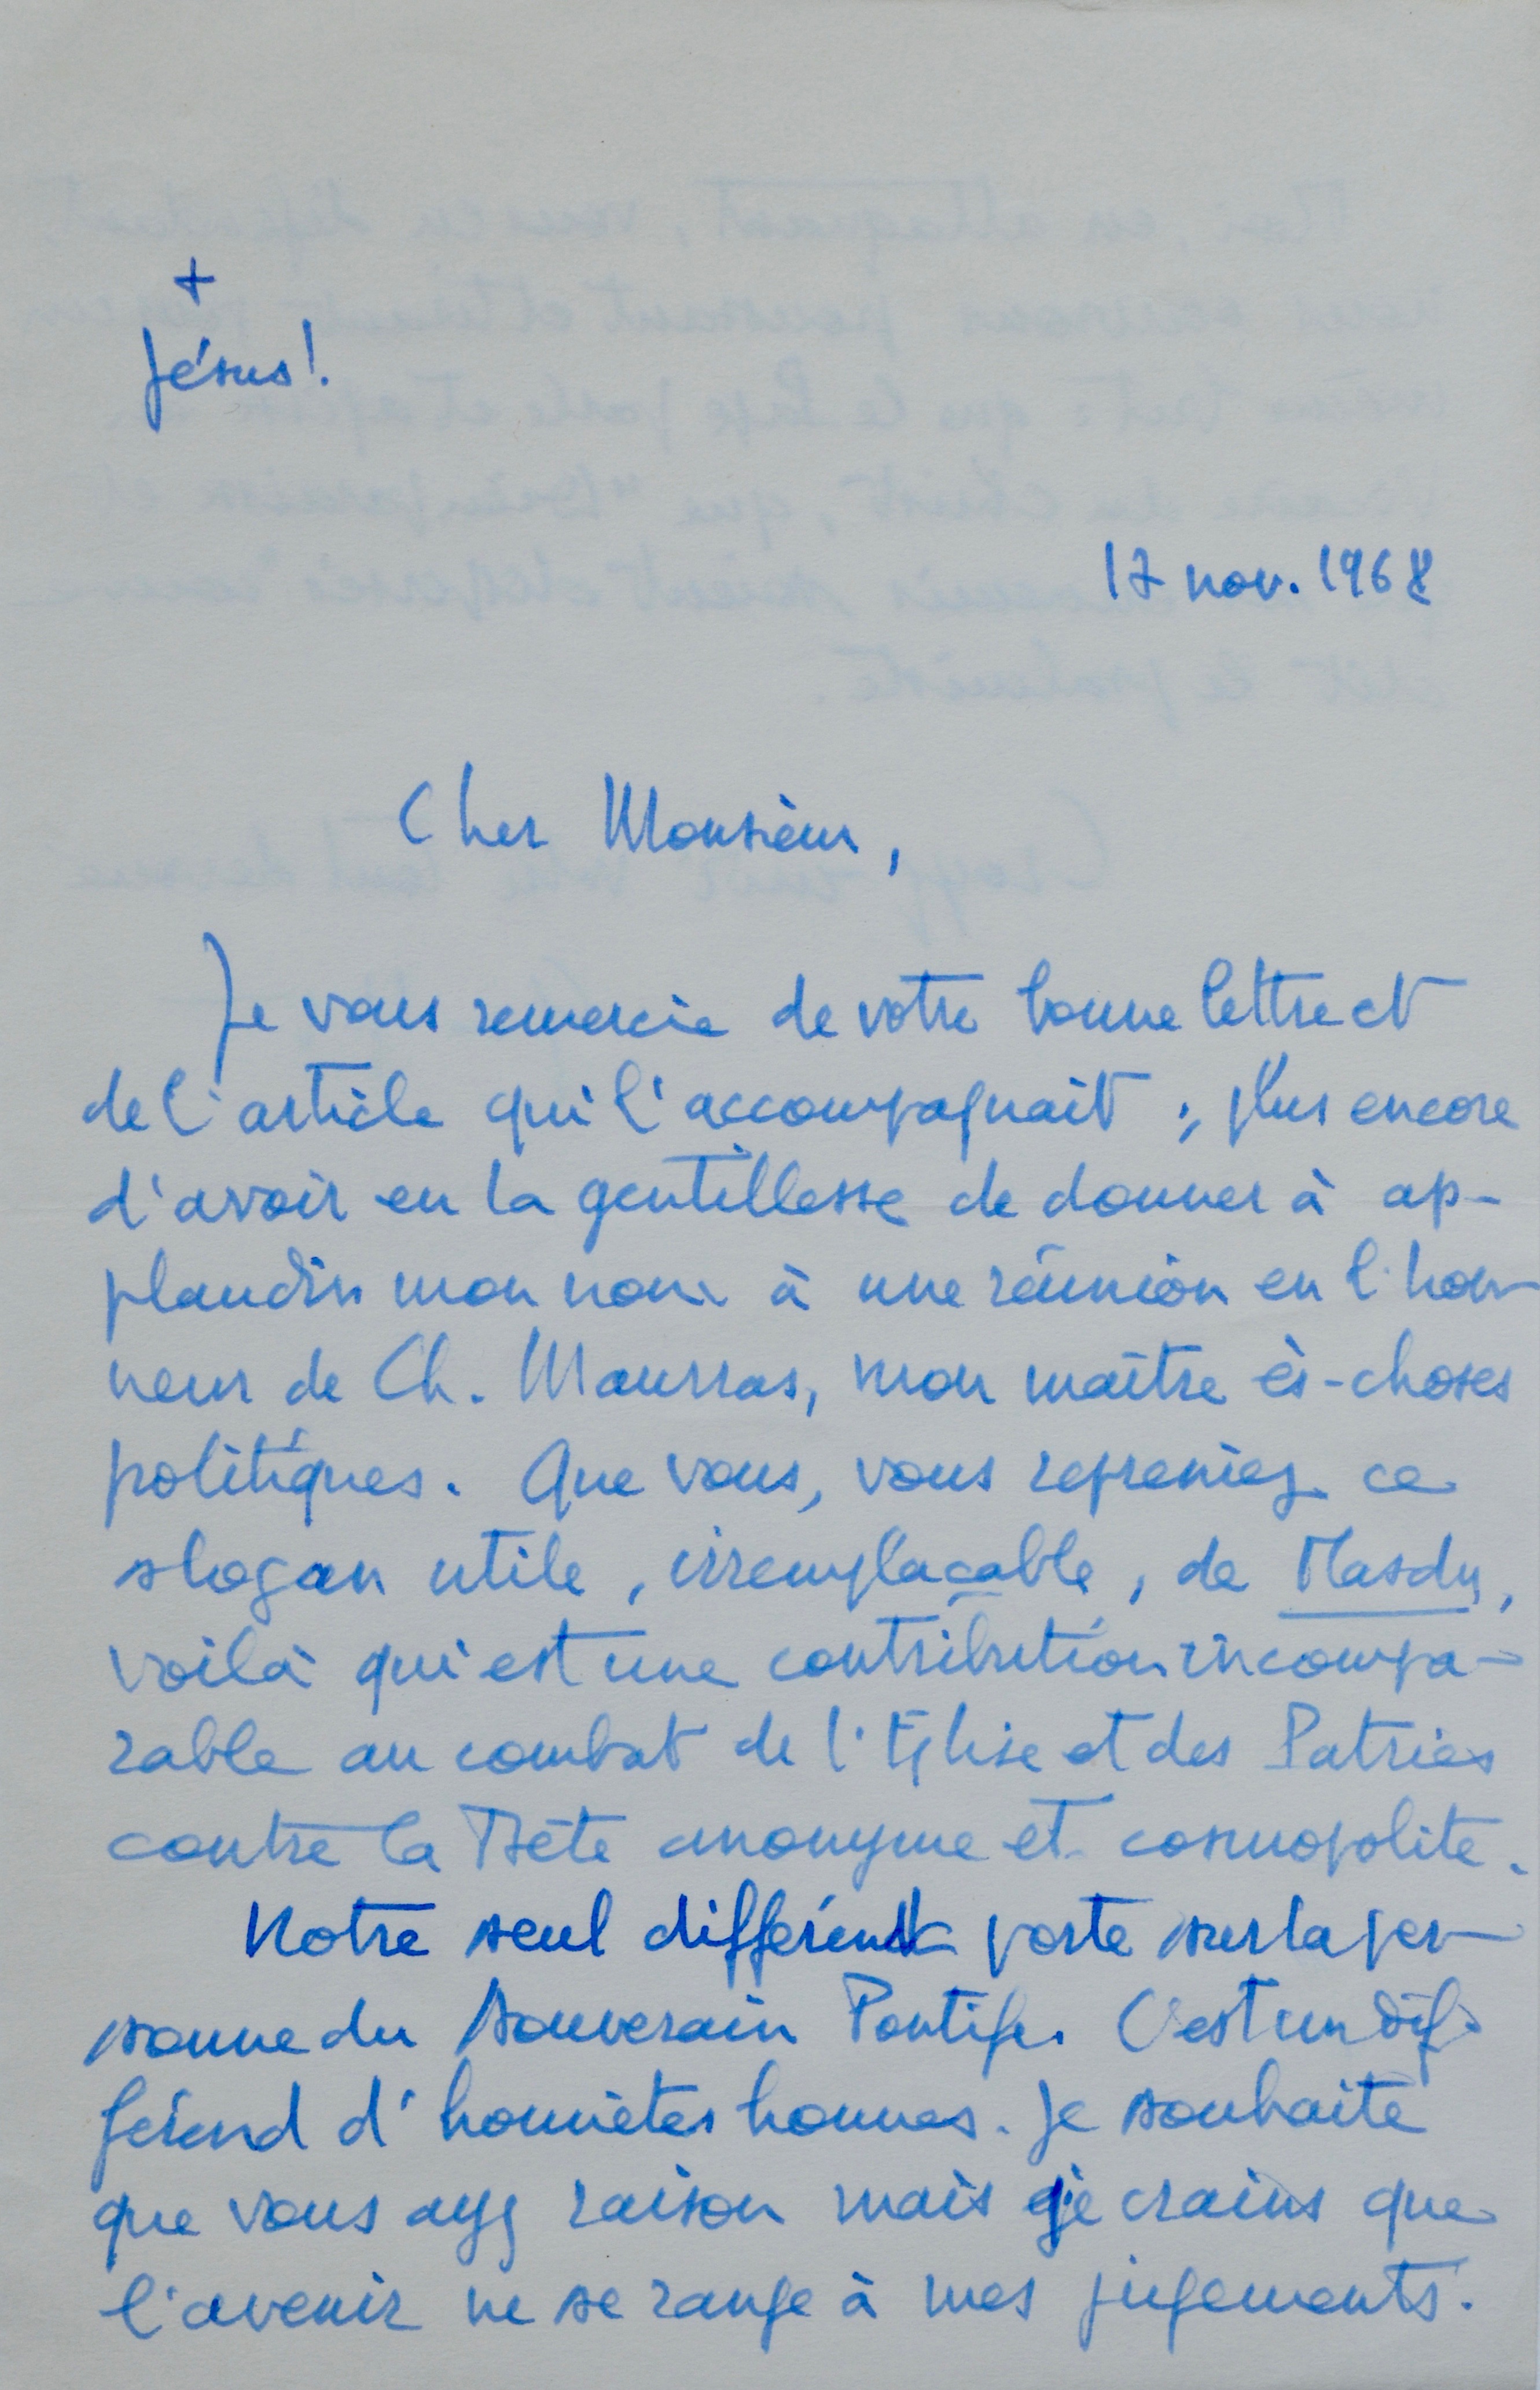 +
Jésus!
17 nov. 1968
Cher Monsieur,
Je vous remercie de votre bonne lettre et
de l'article qui l'accompagnait ; plus encore
d'avoir eu la gentillesse de donner à ap-
plaudir mon nom à une réunion en l'hon-
neur de Ch. Maurras, mon maître ès-choses
politiques. Que vous, vous repreniez ce
slogan utile, irremplaçable, de Masdu,
voilà qui est une contribution incompa-
rable au combat de l'Église et des Patries
contre la Bête anonyme et cosmopolite.
Notre seul différend porte sur la per-
sonne du Souverain Pontife. C'est un dif-
férend d'honnêtes hommes. Je souhaite
que vous ayez raison mais je crains que
l'avenir ne se range à mes jugements.